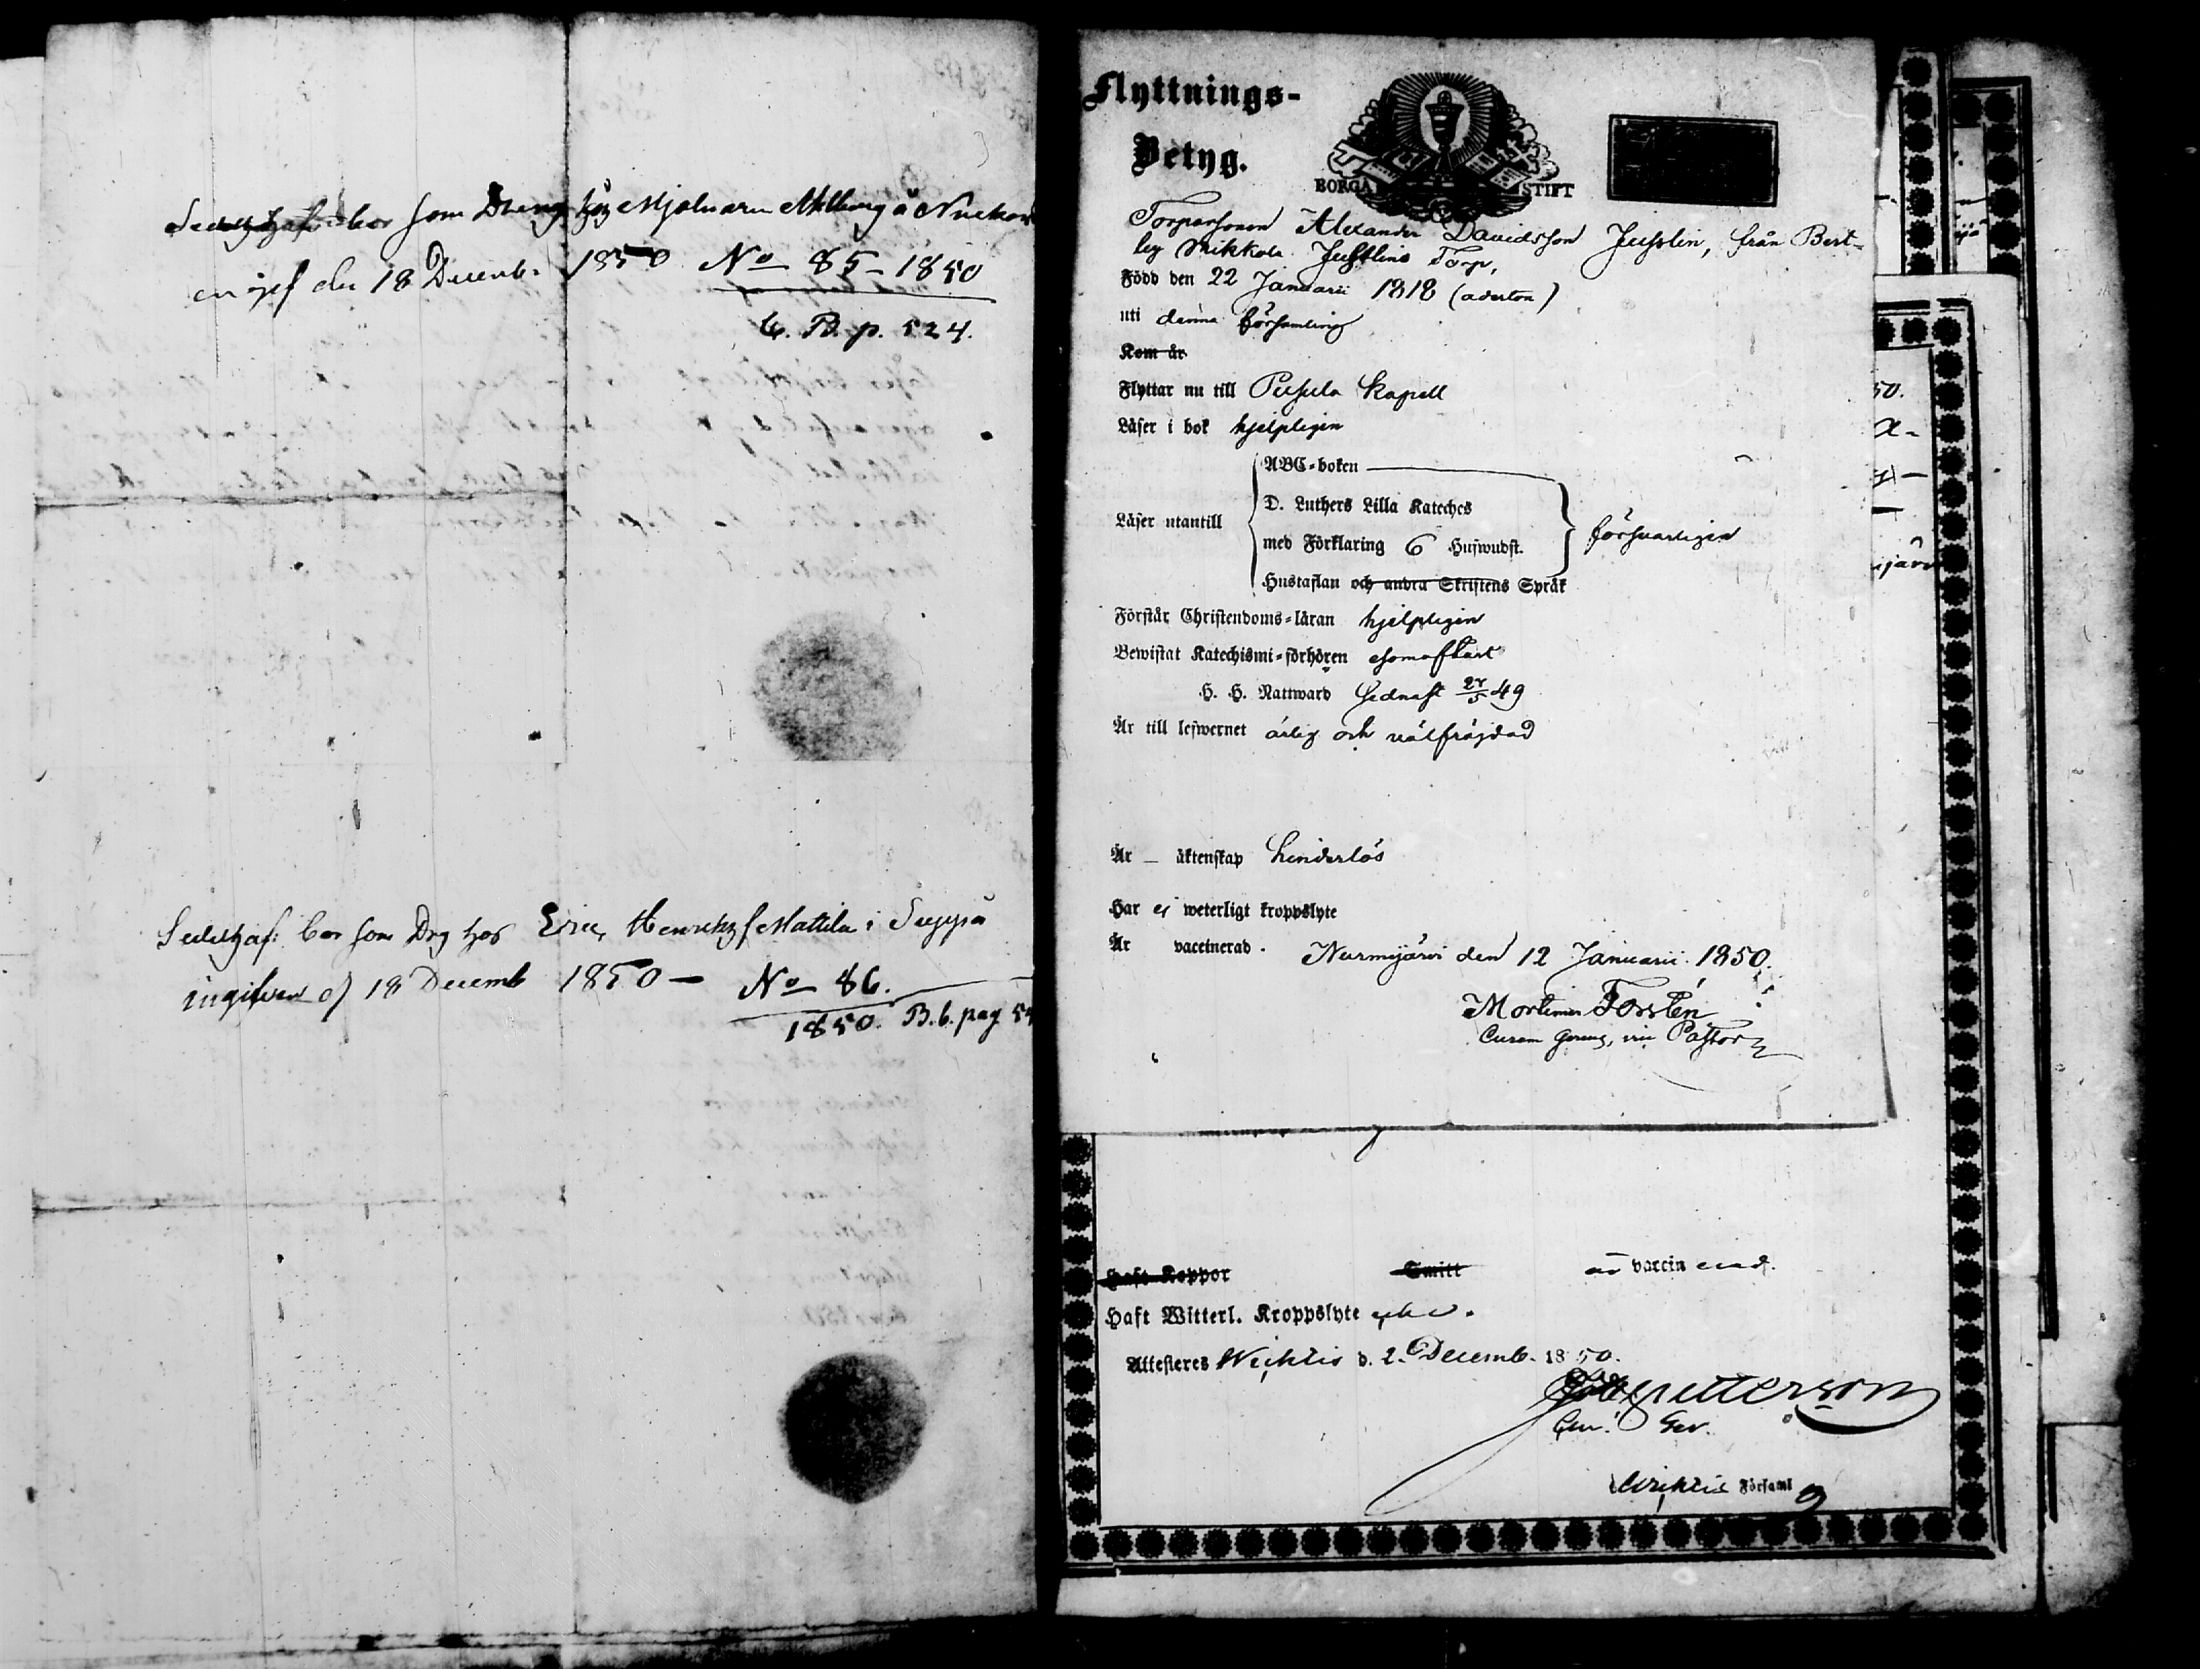 Sedelhafv: bor som Dreng hos Mjölnaren Ahlberg å
den 18 Decemb. 1850 No 85 - 1850
C. B. p. 524.
Sedelhaf: bor som Drg hos Eric Henrikss Mattila i Suppå
ingifven d 18 Decemb 1850 — No 86.
1850. B. 6. pag
Flyttnings-
Betyg.
BORGÅ STIFT
Torparsonen Alexander Davidsson Jusslin, från Bert-
by Mikkola Jusslins Torp,
Född den 22 Januarii 1818 (aderton)
uti denna församling
Kom år
Flyttar nu till Pusula Kapell
Läser i bok hjelpligen
ABC-boken
D. Luthers Lilla Kateches
Läser utantill
med Förklaring 6 Hufwudst. försvarligen
Hustaflan och andra Skriftens Språk
Förstår Christendoms-läran hjelpligen
Bewistat Katechismi-förhören esomoftast
H. H. Nattward sednast 27/5 49
Är till lefwernet ärlig och välfräjdad
Är — äktenskap hinderlös
Har ej weterligt kroppslyte
Är vaccinerad. Nurmijärvi den 12 Januarii 1850.
Mortimer Forstén
Curam Gerens, vice Pastor
50.
Haft Koppor Smitt är vaccinerad.
Haft Witterl. Kroppslyte icke.
Attesteras Wichtis d. 2. Decemb. 1850.
Cur. Ger.
Wichtis Församl